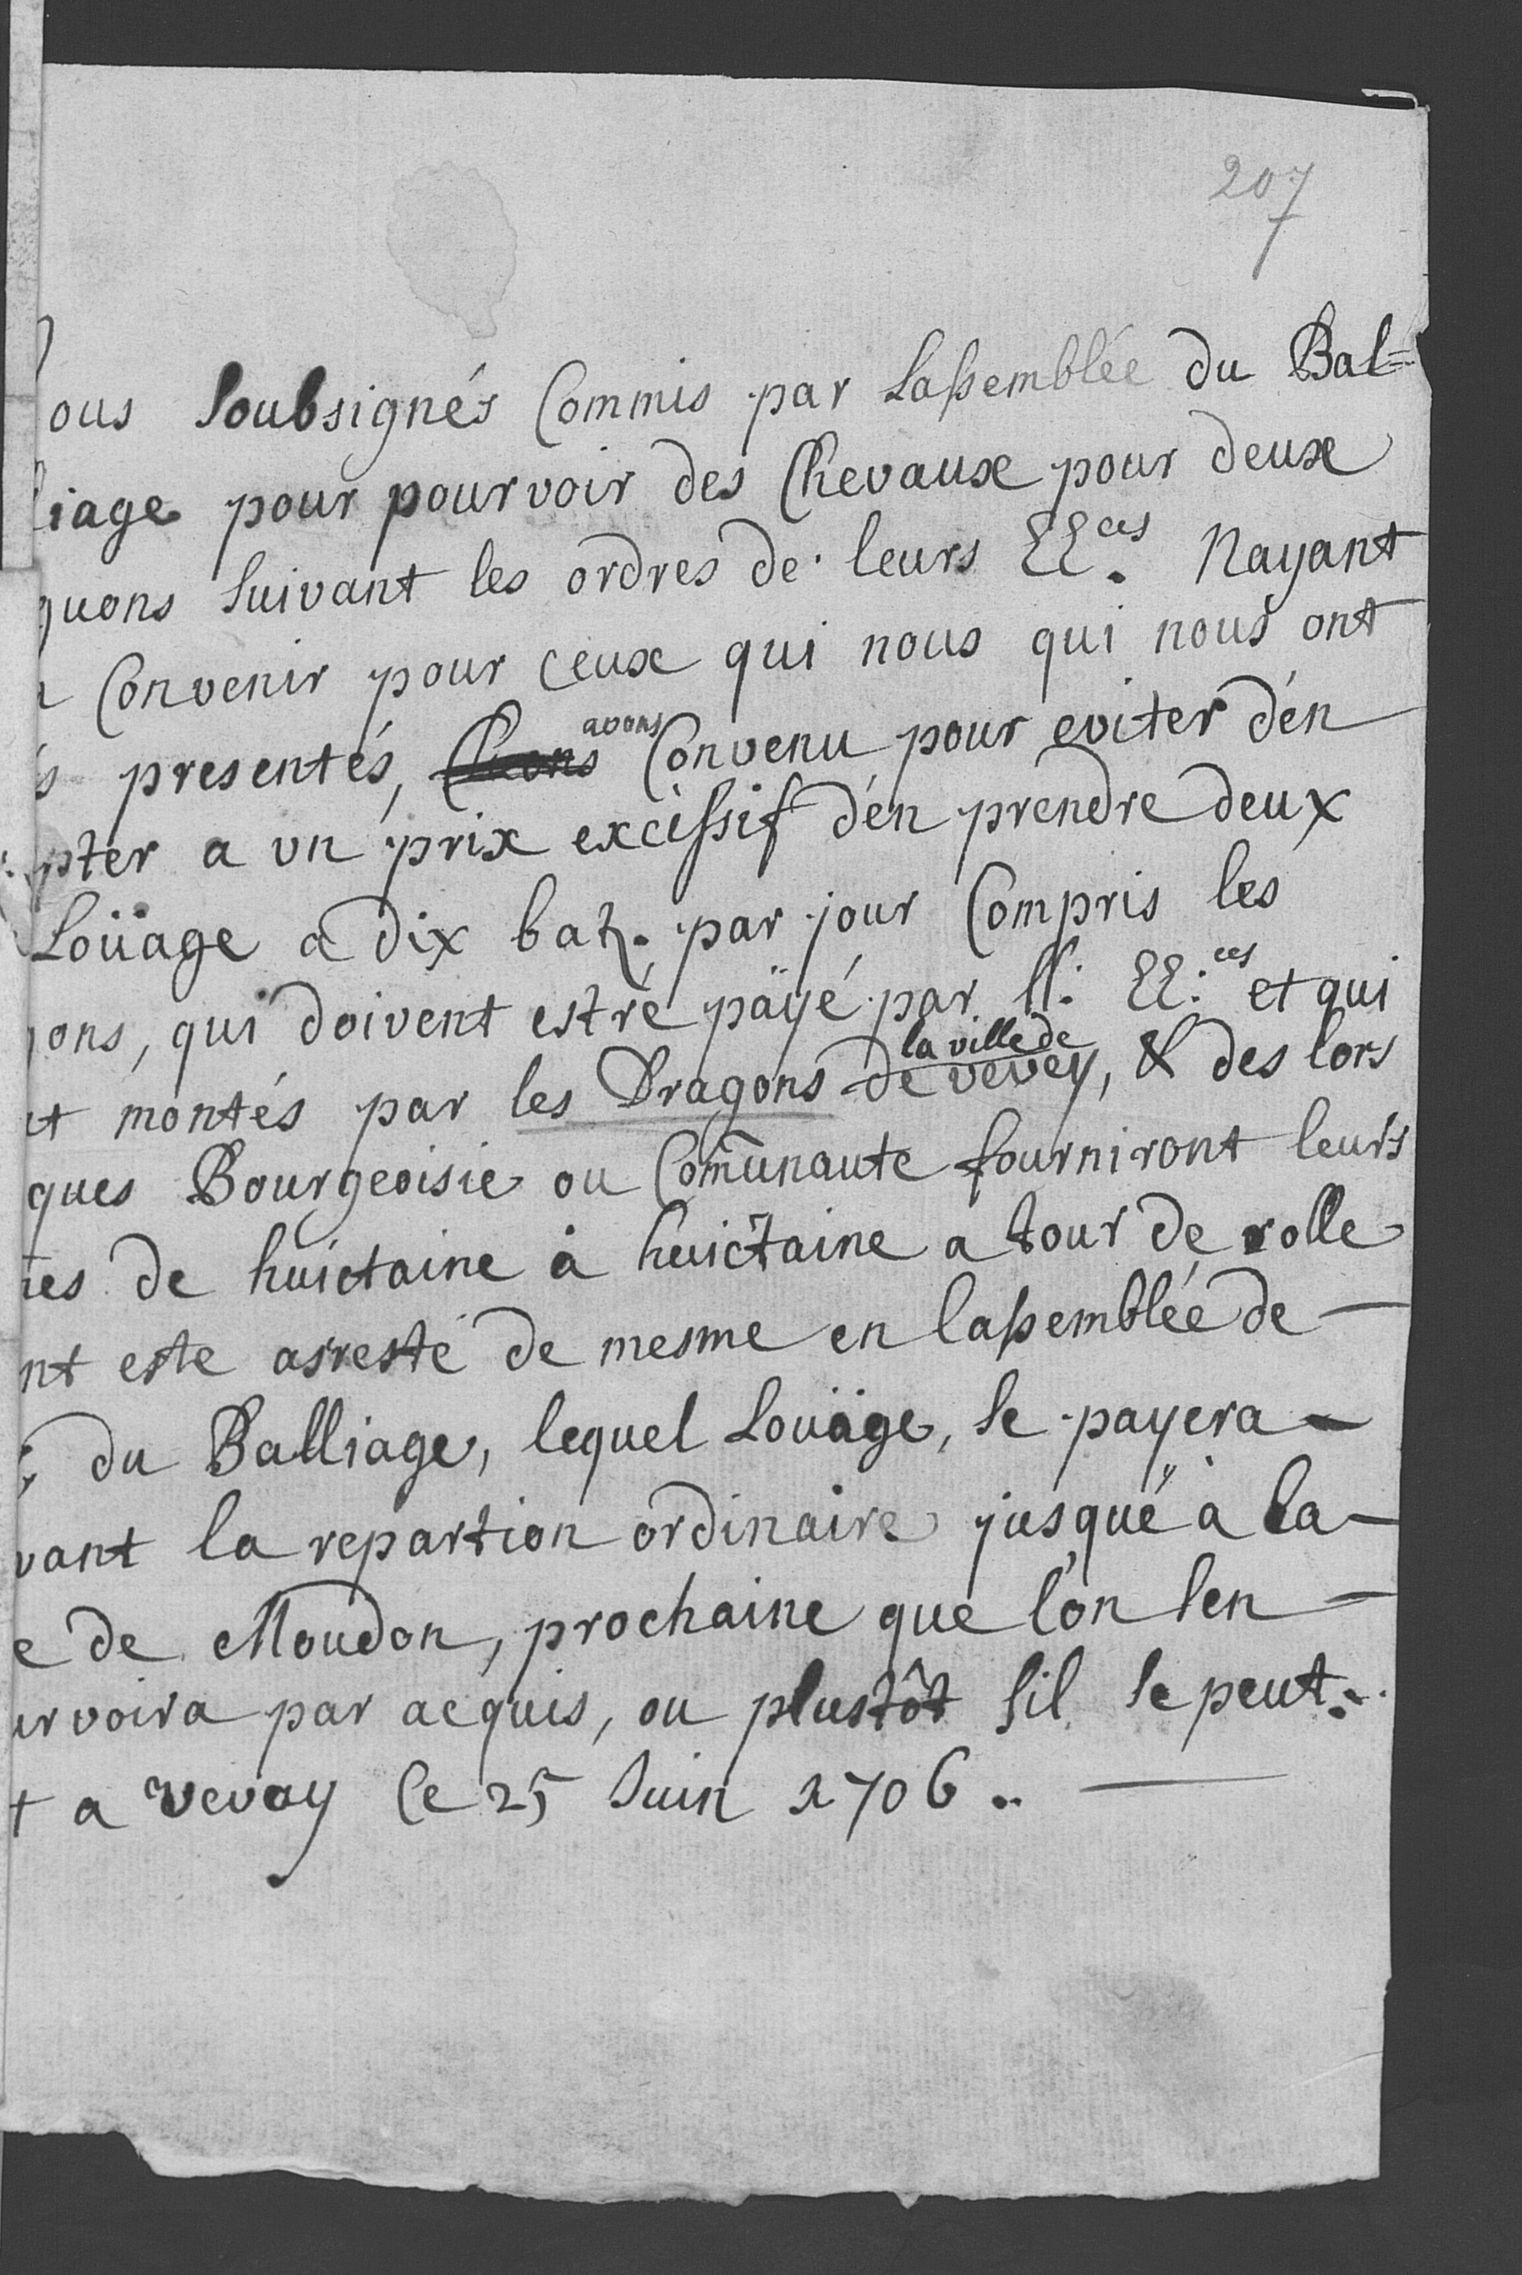 207
ous soubsignés Commis par Lassemblée du Bal=
liage pour pourvoir des Chevaux pour deux
guons suivant les ordres de leurs EE.ces Nayant
Convenir pour ceux qui nous qui nous ont
s presentés, avons Convenu pour eviter d'en
pter a un prix excessif d'en prendre deux
Loüage a dix batz. par jour Compris les
ons, qui doivent estre päyé par ll: EE:ces et qui
nt montés par les Dragons de la ville de vevey, & des lors
ques Bourgeoisie ou Com̃unaute fourniront leurs
es de huictaine à huictaine a tour de rolle
nt este arresté de mesme en lassemblée de
du Balliage, lequel Loüage, se payera
vant la repartion ordinaire jusque à la
e de Moudon, prochaine que l'on sen
rvoira par acquis, ou plustôt sil se peut.
t a vevay Ce 25 Juin 1706.